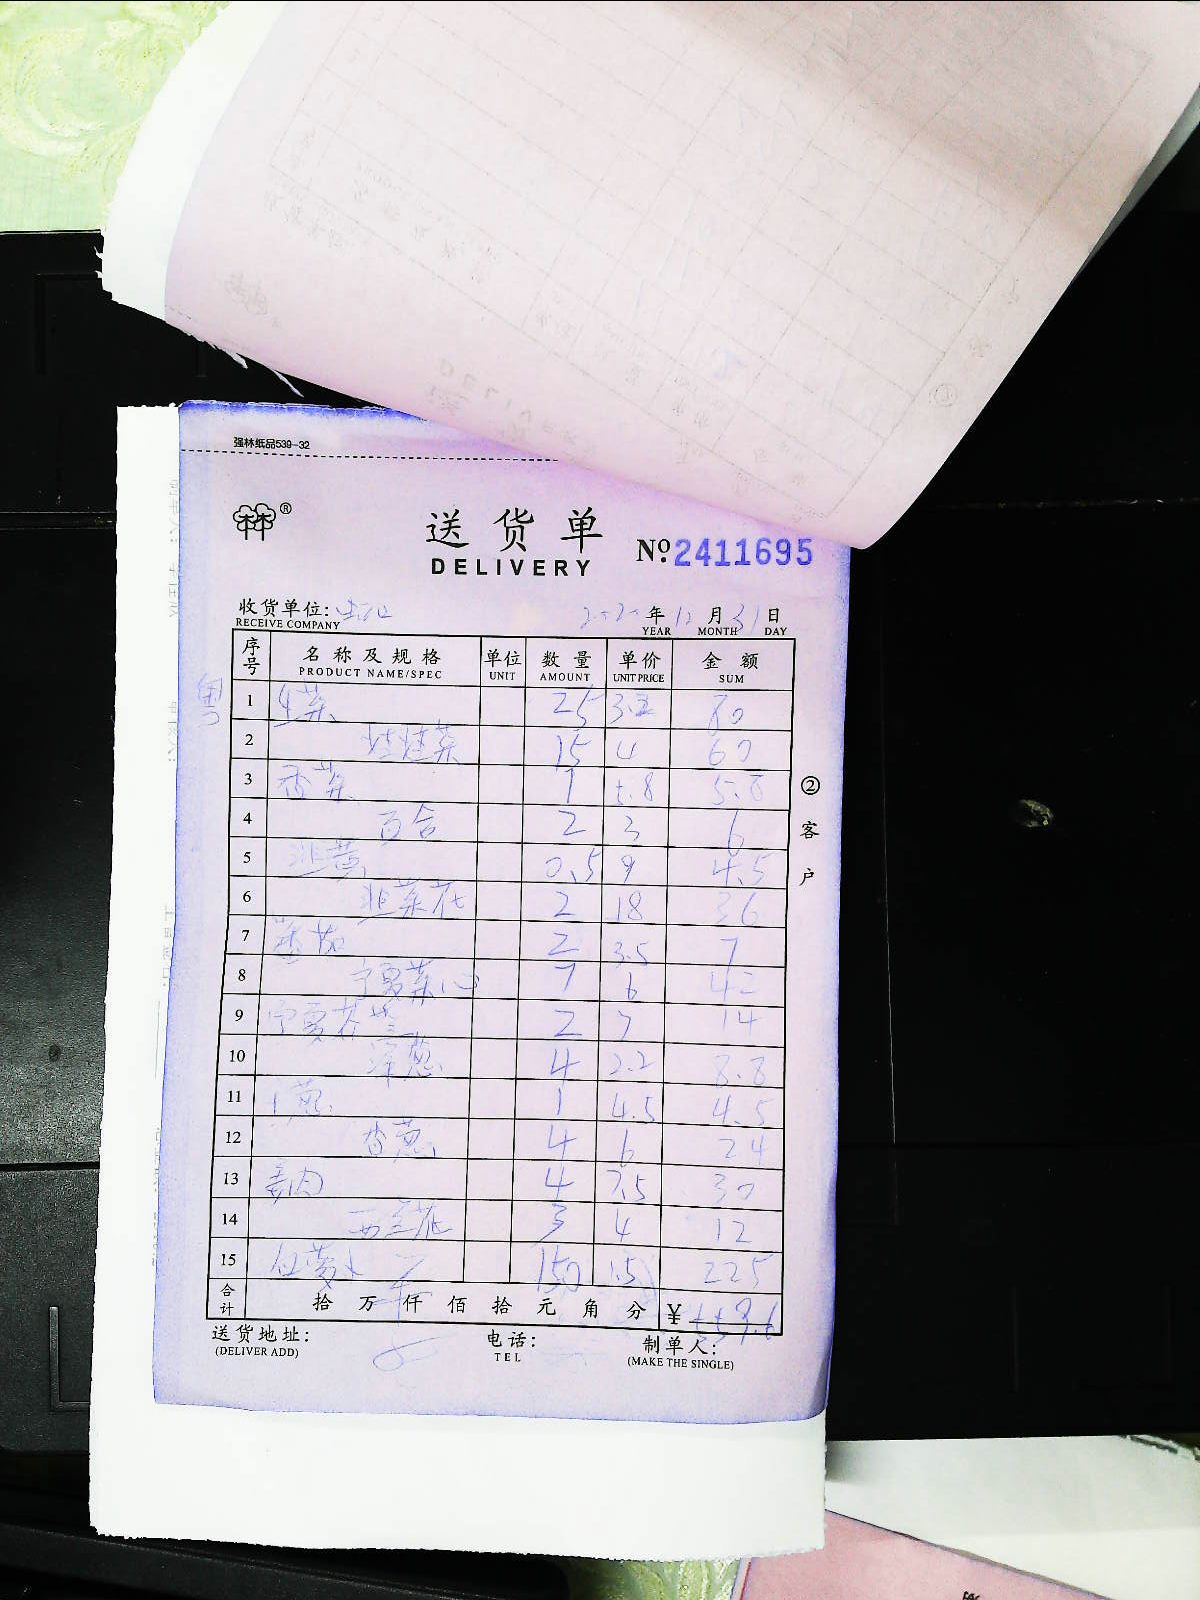 强林纸品539-32
林林®
送货单
DELIVERY
№ 2411695
收货单位:
RECEIVE COMPANY
2020年12月31日
YEAR MONTH DAY
序号 名称及规格 单位 数量 单价 金额
PRODUCT NAME/SPEC UNIT AMOUNT UNIT PRICE SUM
1 生菜 25 3.2 80
2 15 4 60
3 香菜 1 5.8 5.8
4 百合 2 3 6
5 韭黄 0.5 9 4.5
6 韭菜花 2 18 36
7 番茄 2 3.5 7
8 宁夏菜心 7 6 42
9 宁夏芥兰 2 7 14
10 洋葱 4 2.2 8.8
11 葱 1 4.5 4.5
12 香葱 4 6 24
13 姜肉 4 7.5 30
14 西兰花 3 4 12
15 白萝卜 150 1.5 225
合计 拾万仟佰拾元角分 ¥ 559.6
送货地址: 电话: 制单人:
(DELIVER ADD) TEL (MAKE THE SINGLE)
②客户